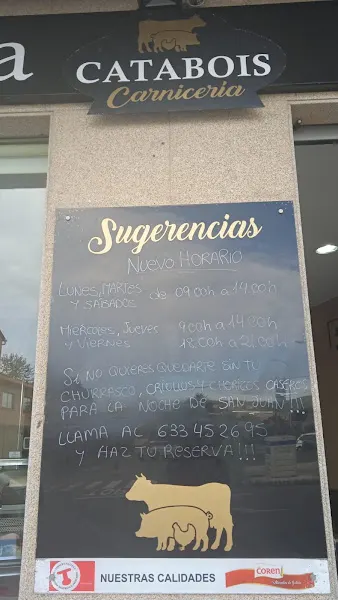 a
CATABOIS
Carnicería
Sugerencias
NUEVO HORARIO
LUNES, MARTES
Y SÁBADOS de 09:00h a 14:00h
MIERCOLES, JUEVES 9:00h a 14:00h
Y VIERNES
SI NO QUIERES QUEDARTE SIN TU
CHURRASCO, CRIOLLOS Y CHORIZOS CASEROS
PARA LA NOCHE DE SAN JUAN!!!
LLAMA AL 633 45 26 95
Y HAZ TU RESERVA!!!
NUESTRAS CALIDADES
COREN